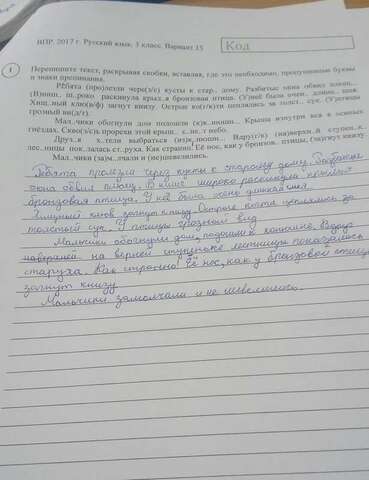 ВПР. 2017 г. Русский язык. 5 класс. Вариант 15
Код
1
Перепишите текст, раскрывая скобки, вставляя, где это необходимо, пропущенные буквы
и знаки препинания.
Ребята (про)лезли чере(з/с) кусты к стар.. дому. Разбитые окна обвил
(В)низ.. ш..роко раскинула крыл.. бронзовая птица. (У)неё была очен.. длин.. шея.
Хищ..ный клю(в/ф) загнут книзу. Острые ко(г/к)ти цеплялись за толст.. сук. (У)птицы
грозный ви(д/т).
Мал..чики обогнули дом подошли (к)к..нюшн.. Крыша изнутри вся в осиных
гнёздах. Скво(з/с)ь прорехи этой крыш.. с..не..т небо.
Друз..я х..тели выбраться (из)к..нюшн.. Вдруг(г/к) (на)верхн..й ступен..к..
лес..ницы пок..залась ст..руха. Как странно! Её нос, как у бронзов.. птицы, (за)гнут книзу.
Мал..чики (за)м..лчали и (не)шевелились.
Ребята пролезли через кусты к старому дому. Разбитые
окна обвил плющ. В книз широко раскинула крылья
бронзовая птица. У неё была длинная шея.
Хищный клюв загнут книзу. Острые когти цеплялись за
толстый сук. У птицы грозный вид
Мальчики обогнули дом, подошли к конюшне. Вдруг
на верхней ступеньке лестницы показалась
старуха. Как странно! Её нос, как у бронзовой птицы
загнут книзу
Мальчики замолчали и не шевелились.